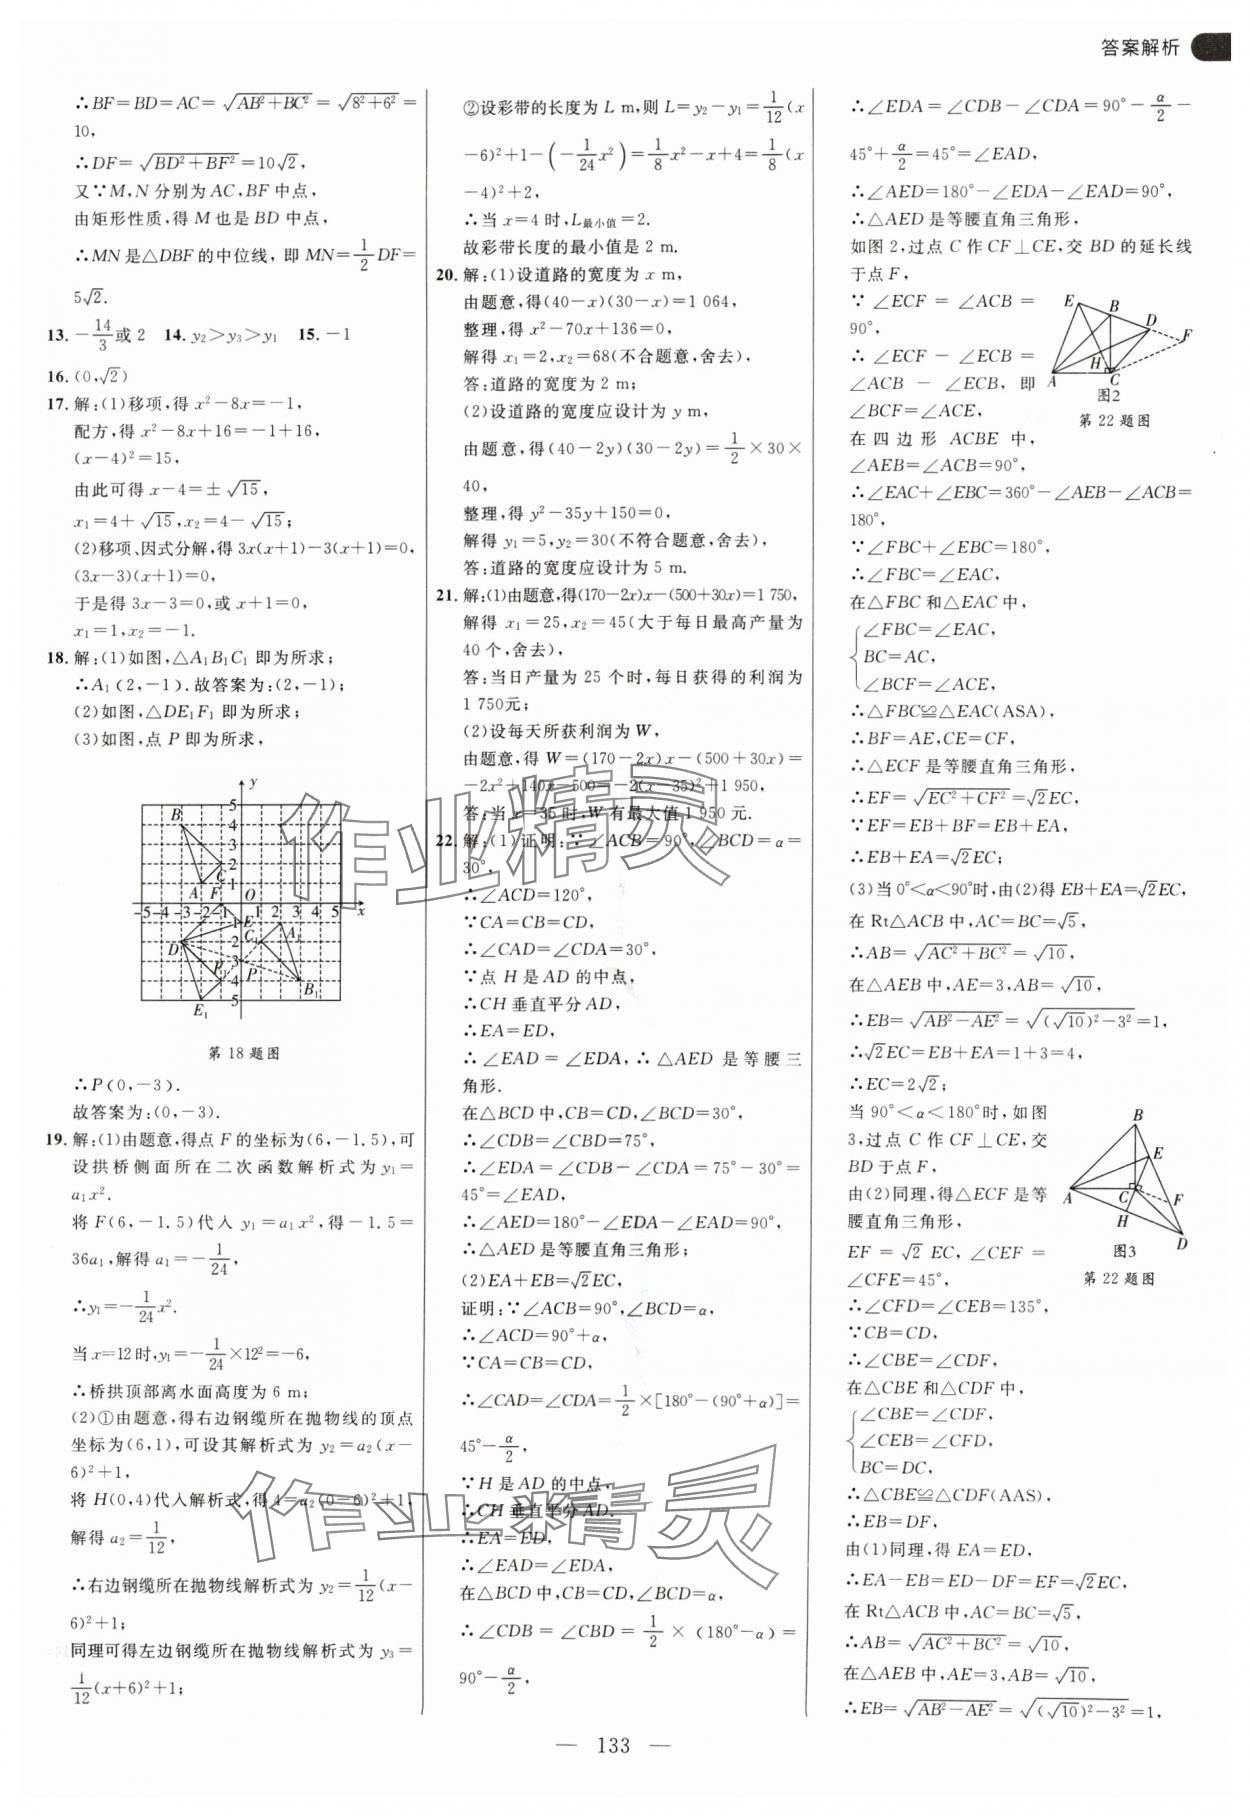 答案解析
∴BF=BD=AC=√(AB²+BC²)=√(8²+6²)=
10,
∴DF=√(BD²+BF²)=10√2,
又∵M,N分别为AC,BF中点,
由矩形性质,得M也是BD中点,
∴MN是△DBF的中位线,即MN=1/2 DF=
5√2.
13. -14/3或2  14. y₂>y₃>y₁  15. -1
16. (0,√2)
17. 解:(1)移项,得x²-8x=-1,
配方,得x²-8x+16=-1+16,
(x-4)²=15,
由此可得x-4=±√15,
x₁=4+√15,x₂=4-√15;
(2)移项、因式分解,得3x(x+1)-3(x+1)=0,
(3x-3)(x+1)=0,
于是得3x-3=0,或x+1=0,
x₁=1,x₂=-1.
18. 解:(1)如图,△A₁B₁C₁即为所求;
∴A₁(2,-1).故答案为:(2,-1);
(2)如图,△DE₁F₁即为所求;
(3)如图,点P即为所求,
第18题图
∴P(0,-3).
故答案为:(0,-3).
19. 解:(1)由题意,得点F的坐标为(6,-1.5),可
设拱桥侧面所在二次函数解析式为y₁=
a₁x².
将F(6,-1.5)代入y₁=a₁x²,得-1.5=
36a₁,解得a₁=-1/24,
∴y₁=-1/24 x².
当x=12时,y₁=-1/24×12²=-6,
∴桥拱顶部离水面高度为6 m;
(2)①由题意,得右边钢缆所在抛物线的顶点
坐标为(6,1),可设其解析式为y₂=a₂(x-
6)²+1,
将H(0,4)代入解析式,得4=a₂(0-6)²+1,
解得a₂=1/12,
∴右边钢缆所在抛物线解析式为y₂=1/12(x-
6)²+1;
同理可得左边钢缆所在抛物线解析式为y₃=
1/12(x+6)²+1;
②设彩带的长度为L m,则L=y₂-y₁=1/12(x
-6)²+1-(-1/24 x²)=1/8 x²-x+4=1/8(x
-4)²+2,
∴当x=4时,L最小值=2.
故彩带长度的最小值是2 m.
20. 解:(1)设道路的宽度为x m,
由题意,得(40-x)(30-x)=1 064,
整理,得x²-70x+136=0,
解得x₁=2,x₂=68(不合题意,舍去),
答:道路的宽度为2 m;
(2)设道路的宽度应设计为y m,
由题意,得(40-2y)(30-2y)=1/2×30×
40,
整理,得y²-35y+150=0,
解得y₁=5,y₂=30(不符合题意,舍去),
答:道路的宽度应设计为5 m.
21. 解:(1)由题意,得(170-2x)x-(500+30x)=1 750,
解得x₁=25,x₂=45(大于每日最高产量为
40个,舍去),
答:当日产量为25个时,每日获得的利润为
1 750元;
(2)设每天所获利润为W,
由题意,得W=(170-2x)x-(500+30x)=
-2x²+140x-500=-2(x-35)²+1 950,
答:当x=35时,W有最大值1 950元.
22. 解:(1)证明:∵∠ACB=90°,∠BCD=α=
30°,
∴∠ACD=120°,
∵CA=CB=CD,
∴∠CAD=∠CDA=30°,
∵点H是AD的中点,
∴CH垂直平分AD,
∴EA=ED,
∴∠EAD=∠EDA,∴△AED是等腰三
角形.
在△BCD中,CB=CD,∠BCD=30°,
∴∠CDB=∠CBD=75°,
∴∠EDA=∠CDB-∠CDA=75°-30°=
45°=∠EAD,
∴∠AED=180°-∠EDA-∠EAD=90°,
∴△AED是等腰直角三角形;
(2)EA+EB=√2EC,
证明:∵∠ACB=90°,∠BCD=α,
∴∠ACD=90°+α,
∵CA=CB=CD,
∴∠CAD=∠CDA=1/2×[180°-(90°+α)]=
45°-α/2,
∵H是AD的中点,
∴CH垂直平分AD.
∴EA=ED,
∴∠EAD=∠EDA,
在△BCD中,CB=CD,∠BCD=α,
∴∠CDB=∠CBD=1/2×(180°-α)=
90°-α/2,
∴∠EDA=∠CDB-∠CDA=90°-α/2-
45°+α/2=45°=∠EAD,
∴∠AED=180°-∠EDA-∠EAD=90°,
∴△AED是等腰直角三角形,
如图2,过点C作CF⊥CE,交BD的延长线
于点F,
∵∠ECF=∠ACB=
90°,
∴∠ECF-∠ECB=
∠ACB-∠ECB,即
∠BCF=∠ACE,
图2
第22题图
在四边形ACBE中,
∠AEB=∠ACB=90°,
∴∠EAC+∠EBC=360°-∠AEB-∠ACB=
180°,
∵∠FBC+∠EBC=180°,
∴∠FBC=∠EAC,
在△FBC和△EAC中,
∠FBC=∠EAC,
BC=AC,
∠BCF=∠ACE,
∴△FBC≌△EAC(ASA),
∴BF=AE,CE=CF,
∴△ECF是等腰直角三角形,
∴EF=√(EC²+CF²)=√2EC,
∵EF=EB+BF=EB+EA,
∴EB+EA=√2EC;
(3)当0°<α<90°时,由(2)得EB+EA=√2EC,
在Rt△ACB中,AC=BC=√5,
∴AB=√(AC²+BC²)=√10,
在△AEB中,AE=3,AB=√10,
∴EB=√(AB²-AE²)=√((√10)²-3²)=1,
∴√2EC=EB+EA=1+3=4,
∴EC=2√2;
当90°<α<180°时,如图
3,过点C作CF⊥CE,交
BD于点F,
由(2)同理,得△ECF是等
腰直角三角形,
EF=√2EC,∠CEF=
∠CFE=45°,
图3
第22题图
∴∠CFD=∠CEB=135°,
∵CB=CD,
∴∠CBE=∠CDF,
在△CBE和△CDF中,
∠CBE=∠CDF,
∠CEB=∠CFD,
BC=DC,
∴△CBE≌△CDF(AAS),
∴EB=DF,
由(1)同理,得EA=ED,
∴EA-EB=ED-DF=EF=√2EC,
在Rt△ACB中,AC=BC=√5,
∴AB=√(AC²+BC²)=√10,
在△AEB中,AE=3,AB=√10,
∴EB=√(AB²-AE²)=√((√10)²-3²)=1,
— 133 —
作业精灵
作业精灵